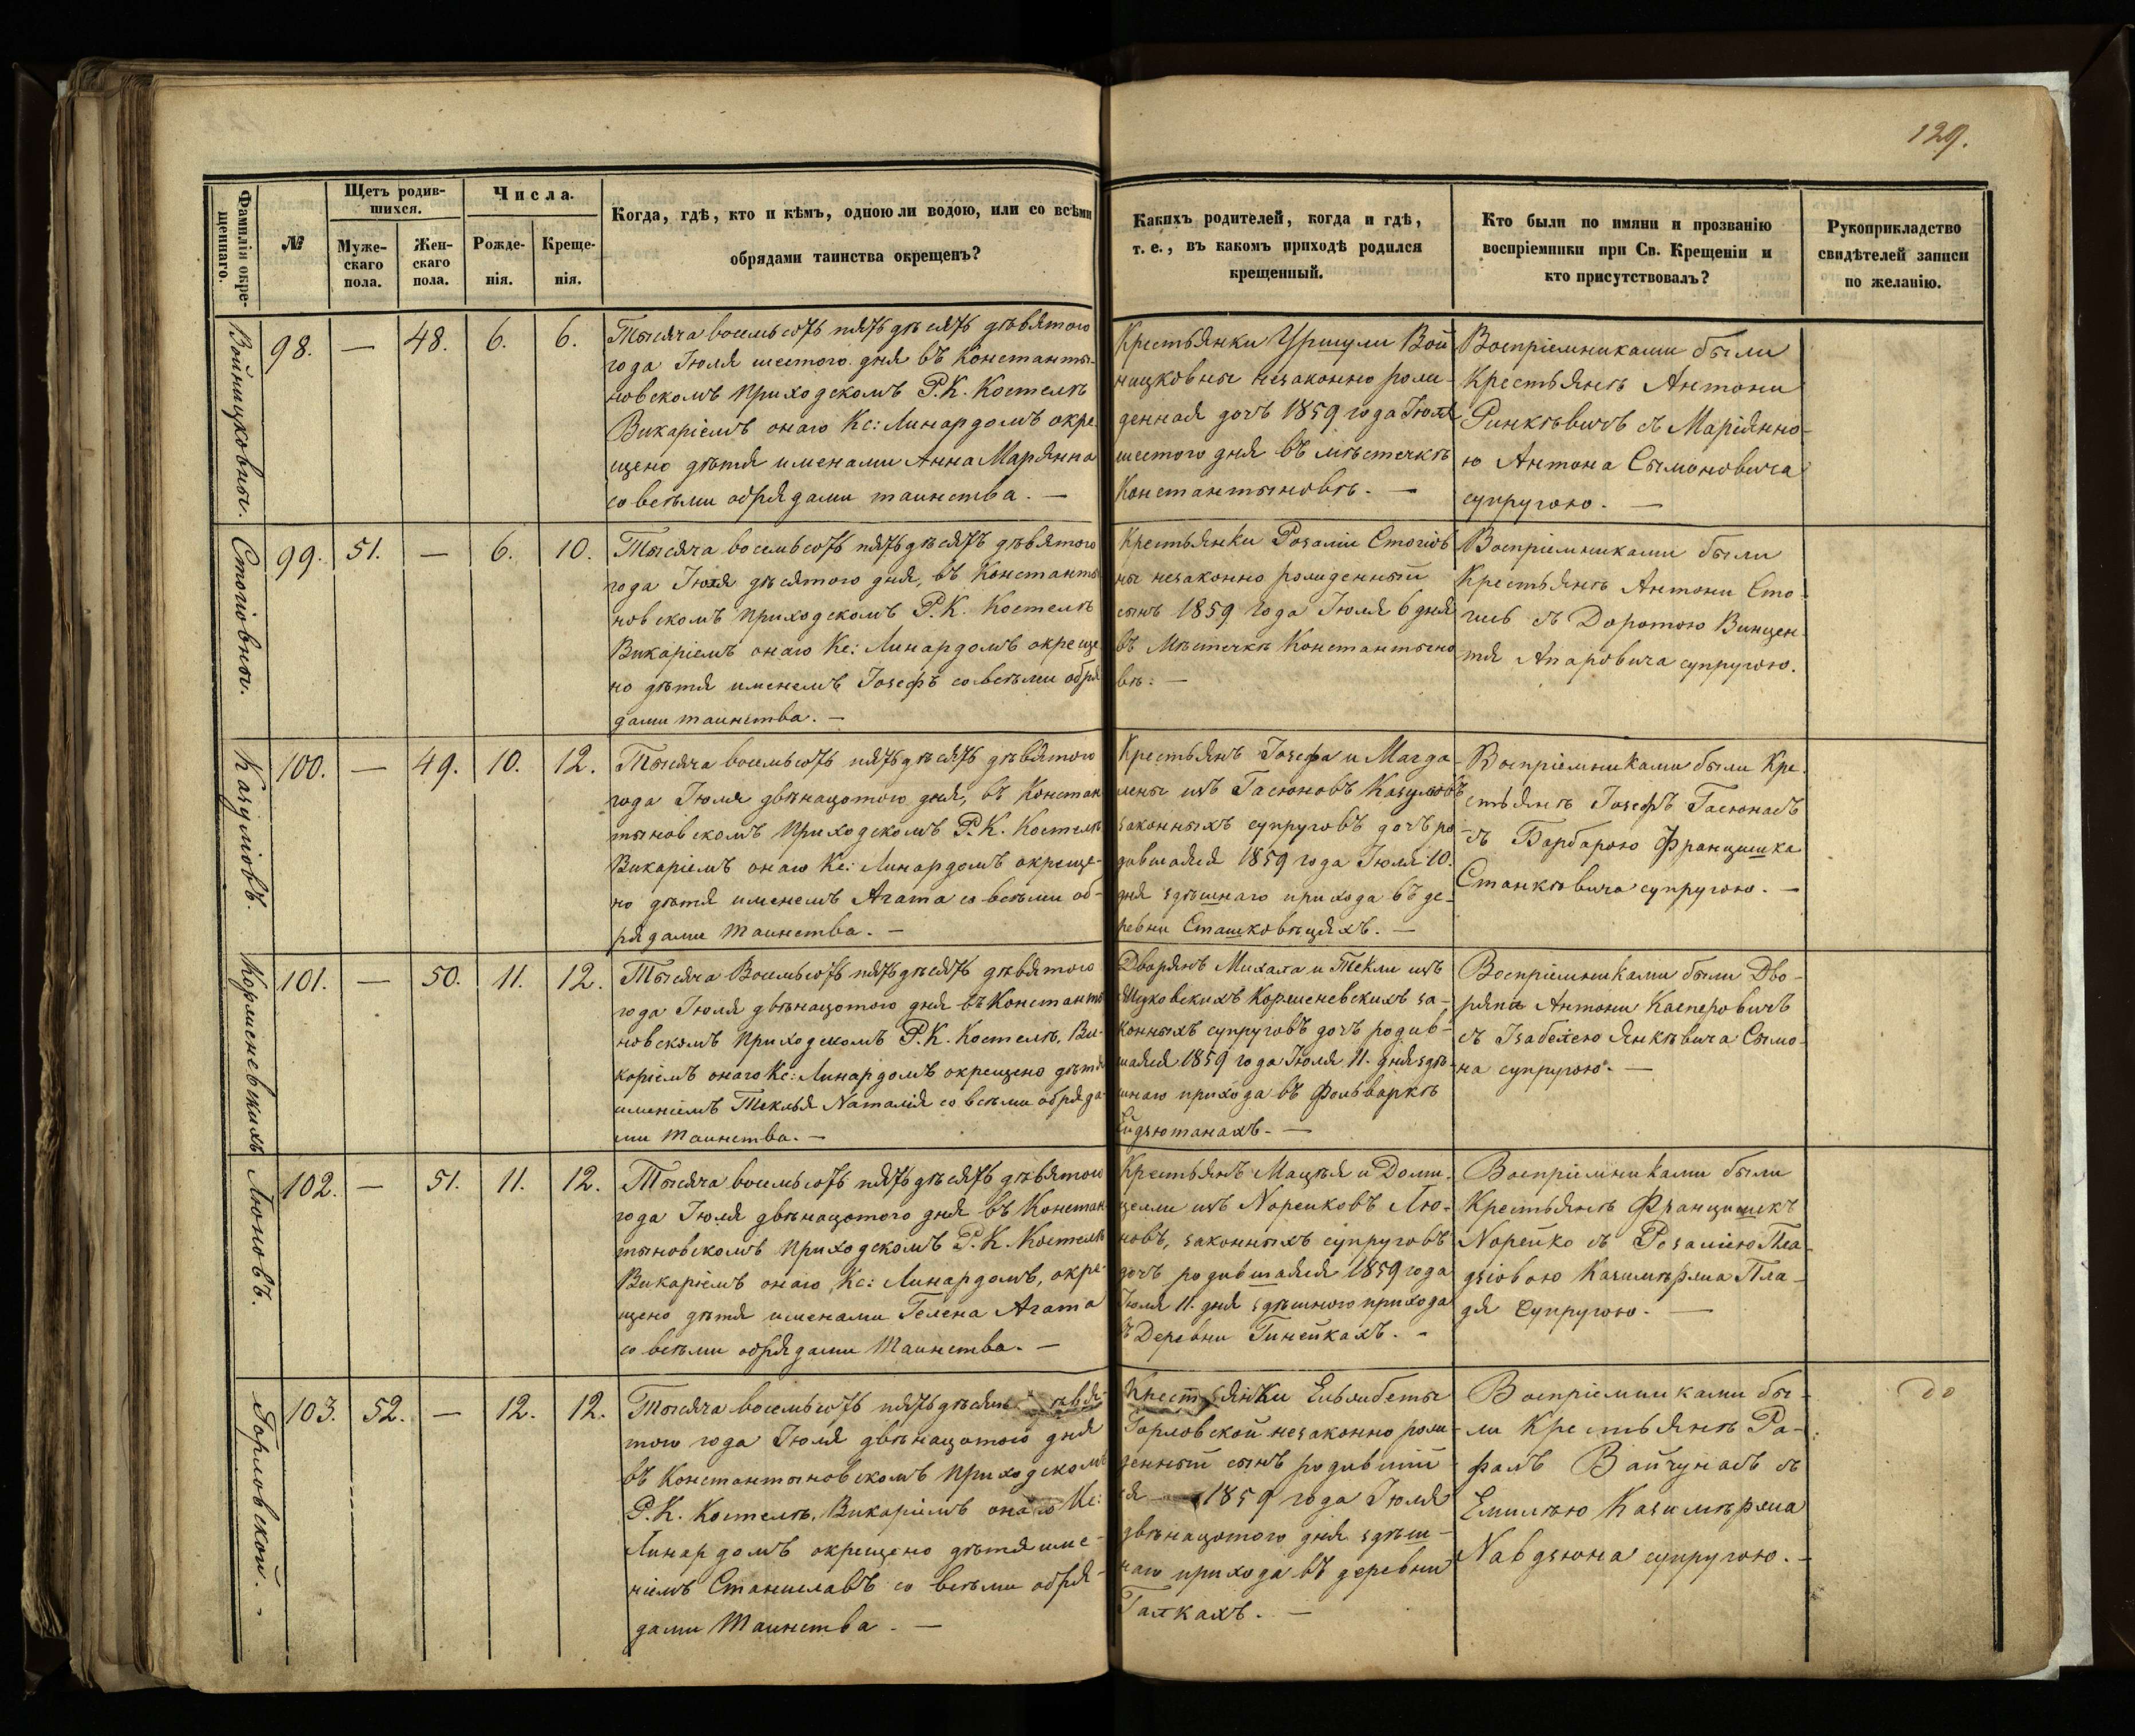 129.
Фамилія окре-
щеннаго.
№
Щетъ родив-
шихся.
Муже-
скаго
пола.
Жен-
скаго
пола.
Числа.
Рожде-
нія.
Креще-
нія.
Когда, гдѣ, кто и кѣмъ, одною ли водою, или со всѣми
обрядами таинства окрещенъ?
Какихъ родителей, когда и гдѣ,
т. е., въ какомъ приходѣ родился
крещенный.
Кто были по имяни и прозванію
воспріемники при Св. Крещеніи и
кто присутствовалъ?
Рукоприкладство
свидѣтелей записи
по желанію.
Войницковны.
98. — 48. 6. 6.
Тысяча восемьсотъ пятьдѣсятъ дѣвятого
года Іюля шестого дня въ Константы-
новскомъ приходскомъ Р.К. Костелѣ
Викаріемъ онаго Кс: Линардомъ окре-
щено дѣтя именами Анна Марянна
со всѣми обрядами таинства. —
Крестьянки Уршули Вой
ницковны незаконно рожи-
денная дочъ 1859 года Іюля
шестого дня въ мѣстечкѣ
Константыновѣ. —
Воспріемниками были
Крестьянѣ Антони
Ринкѣвичъ съ Маріянно-
ю Антона Сымоновича
супругою. —
Стогіовны.
99. 51. — 6. 10.
Тысяча восемьсотъ пятьдѣсятъ дѣвятого
года Іюля дѣсятого дня, въ Константы
новскомъ приходскомъ Р.К. Костелѣ
Викаріемъ онаго Кс: Линардомъ окреще
но дѣтя именемъ Іозефъ со всѣми обря
дами таинства. —
Крестьянки Розаліи Стогіов
ны незаконно рожиденный
сынъ 1859 года Іюля 6 дня
въ Мѣстечкѣ Константыно
вѣ: —
Воспріемниками были
Крестьянѣ Антони Сто-
гисъ съ Доротою Винцен-
тія Апаровича супругою.
Казуліовъ.
100. — 49. 10. 12.
Тысяча восемьсотъ пятьдѣсятъ дѣвятого
года Іюля двѣнацотого дня, въ Констан
тыновскомъ приходскомъ Р.К. Костелѣ
Викаріемъ онаго Кс: Линардомъ окреще-
но дѣтя именемъ Агата со всѣми об-
рядами таинства. —
Крестьянъ Іозефа и Магда
лены изъ Гасюновъ Казуліовъ
законныхъ супруговъ дочъ ро
дившаяся 1859 года Іюля 10.
дня здѣшнаго прихода въ де-
ревни Сташковѣцяхъ. —
Воспріемниками были Кре-
стьянѣ Іозефъ Гасюнасъ
съ Барбарою Францишка
Станкѣвича супругою. —
Корженевскихъ
101. — 50. 11. 12.
Тысяча Восемьсотъ пятьдѣсятъ дѣвятого
года Іюля двѣнацотого дня въ Константы
новскомъ приходскомъ Р.К. Костелѣ, Ви-
каріемъ онаго Кс: Линардомъ окрещено дѣтя
именіемъ Теклья Nаталія со всѣми обряда-
ми таинства. —
Дворянъ Михала и Текли изъ
Корженевскихъ за-
конныхъ супруговъ дочъ родив-
шаяся 1859 года Іюля 11. дня здѣ-
шнаго прихода въ Фольваркѣ
Ейдзютанахъ. —
Воспріемниками были Дво-
рянѣ Антони Касперовичъ
съ Ізабелею Янкѣвича Сымо-
на супругою. —
Люновъ.
102. — 51. 11. 12.
Тысяча восемьсотъ пятьдѣсятъ дѣвятого
года Іюля двѣнацотого дня въ Констан
тыновскомъ приходскомъ Р.К. Костелѣ
Викаріемъ онаго, Кс: Линардомъ, окре-
щено дѣтя именами Гелена Агата
со всѣми обрядами таинства. —
Крестьянъ Мацѣя и Доми-
целли изъ Nореиковъ Лю-
новъ, законныхъ супруговъ
дочъ родившаяся 1859 года
Іюля 11. дня здѣшного прихода
въ Деревни Гинейкахъ. —
Воспріемниками были
Крестьянѣ Францишекъ
Nорейко съ Розаліею Пла-
дзіовою Казимѣржа Пла-
дя Супругою. —
Горловской. -
103. 52. — 12. 12.
Тысяча восемьсотъ пятьдѣсятъ дѣвя-
того года Іюля двѣнацотого дня
въ Константыновскомъ приходскомъ
Р.К. Костелѣ, Викаріемъ онаго Кс:
Линардомъ окрещено дѣтя име-
ніемъ Станиславъ со всѣми обря-
дами Таинства. —
Крестьянки Ельзибеты
Горловской незаконно рожи-
денный сынъ родивший
ся 1859 года Іюля
двѣнацотого дня здѣш-
наго прихода въ деревни
Галкахъ. —
Воспріемниками бы-
ли Крестьянѣ Ра-
фалъ Вайчунасъ съ
Емиліею Казимѣржа
Nавдзюна супругою. —